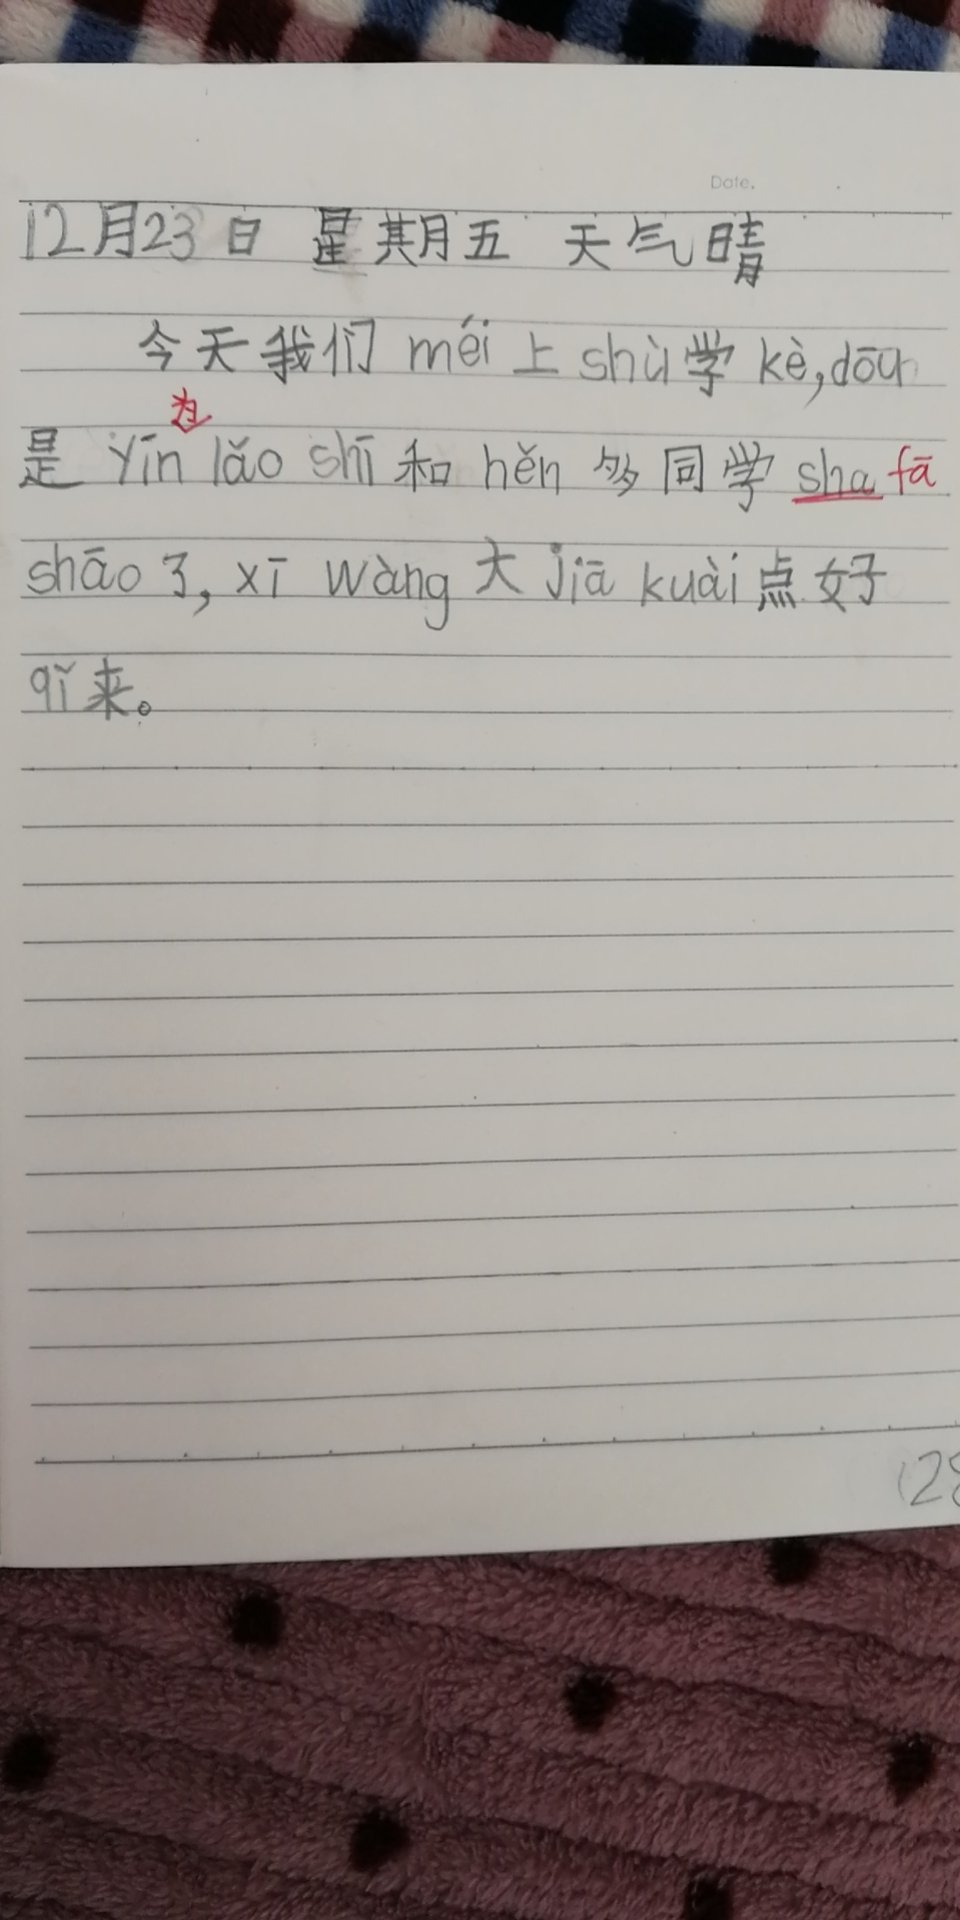 Date.
12月23日 星期五 天气晴
今天我们 méi 上 shù 学 kè, dōu
为
是 yīn lǎo shī 和 hěn 多 同 学 sha fā
shāo 了, xī wàng 大 jiā kuài 点 好
qǐ 来。
128